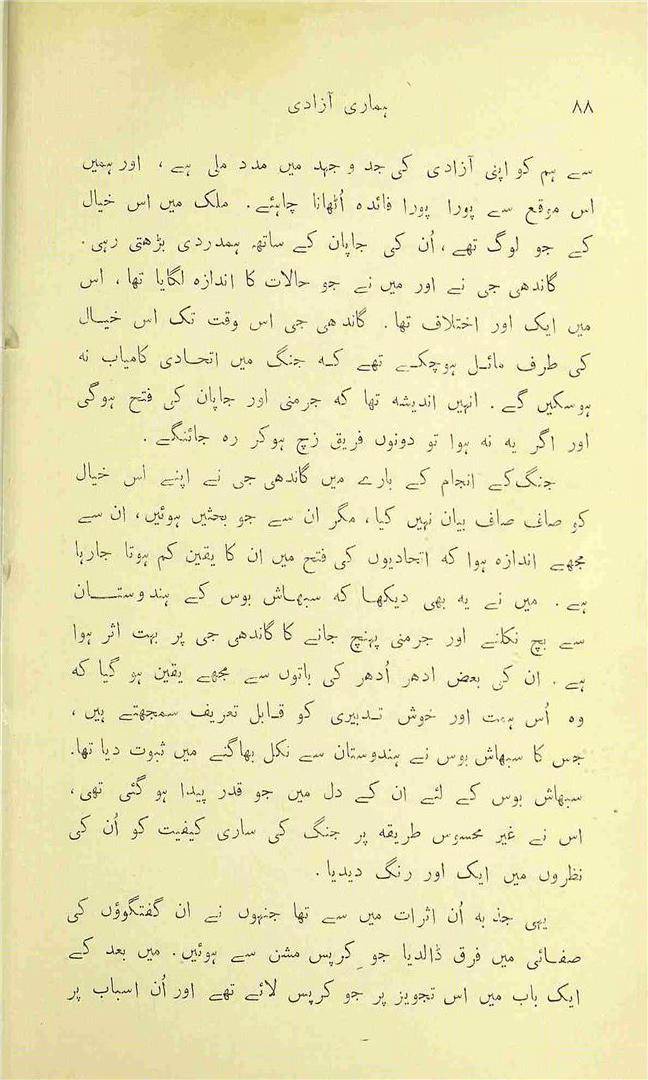 ۸۸ ہماری آزادی
سے ہم کو اپنی آزادی کی جد و جہد میں مدد ملی ہے ، اور ہمیں
اس موقع سے پورا پورا فائدہ اُٹھانا چاہئے . ملک میں اس خیال
کے جو لوگ تھے ، اُن کی جاپان کے ساتھ ہمدردی بڑھتی رہی .
گاندھی جی نے اور میں نے جو حالات کا اندازہ لگایا تھا ، اس
میں ایک اور اختلاف تھا . گاندھی جی اس وقت تک اس خیال
کی طرف مائل ہوچکے تھے کہ جنگ میں اتحادی کامیاب نہ
ہوسکیں گے . انہیں اندیشہ تھا کہ جرمنی اور جاپان کی فتح ہوگی
اور اگر یہ نہ ہوا تو دونوں فریق زچ ہوکر رہ جائنگے .
جنگ کے انجام کے بارے میں گاندھی جی نے اپنے اس خیال
کو صاف صاف بیان نہیں کیا ، مگر ان سے جو بحثیں ہوئیں ، ان سے
مجھے اندازہ ہوا کہ اتحادیوں کی فتح میں ان کا یقین کم ہوتا جارہا
ہے . میں نے یہ بھی دیکھا کہ سبھاش بوس کے ہندوستان
سے بچ نکلنے اور جرمنی پہنچ جانے کا گاندھی جی پر بہت اثر ہوا
ہے . ان کی بعض ادھر اُدھر کی باتوں سے مجھے یقین ہو گیا کہ
وہ اُس ہمت اور خوش تدبیری کو قابل تعریف سمجھتے ہیں ،
جس کا سبھاش بوس نے ہندوستان سے نکل بھاگنے میں ثبوت دیا تھا .
سبھاش بوس کے لئے ان کے دل میں جو قدر پیدا ہو گئی تھی ،
اس نے غیر محسوس طریقہ پر جنگ کی ساری کیفیت کو اُن کی
نظروں میں ایک اور رنگ دیدیا .
یہی جذبہ اُن اثرات میں سے تھا جنہوں نے ان گفتگوؤں کی
صفائی میں فرق ڈالدیا جو کرپس مشن سے ہوئیں . میں بعد کے
ایک باب میں اس تجویز پر جو کرپس لائے تھے اور اُن اسباب پر